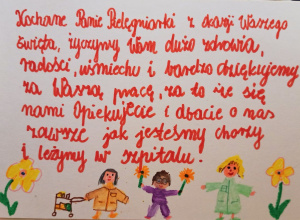 Kochane Panie Pielęgniarki z okazji Waszego
święta, życzymy Wam dużo zdrowia,
radości, uśmiechu i bardzo dziękujemy
za Waszą pracę, za to że się
nami Opiekujecie i dbacie o nas
zawsze jak jesteśmy chorzy
i leżymy w szpitalu.